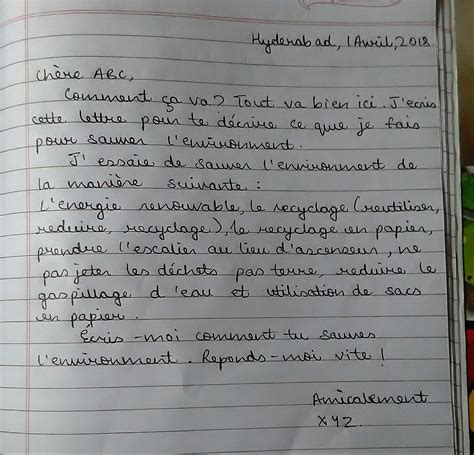 Hyderabad, 1 Avril, 2018
Chère ABC,
Comment ça va? Tout va bien ici. J'ecris
cette lettre pour te décrire ce que je fais
pour sauver l'environment.
J' essaie de sauver l'environment de
la manière suivante :
L'energie renouvable, le recyclage (reutiliser,
reduire, recyclage), le recyclage en papier,
prendre l'escalier au lieu d'ascenseur, ne
pas jeter les déchets pas terre, reduire le
gaspillage d'eau et utilisation de sacs
en papier.
Écris-moi comment tu sauves
l'environment. Reponds-moi vite!
Amicalement
XYZ.